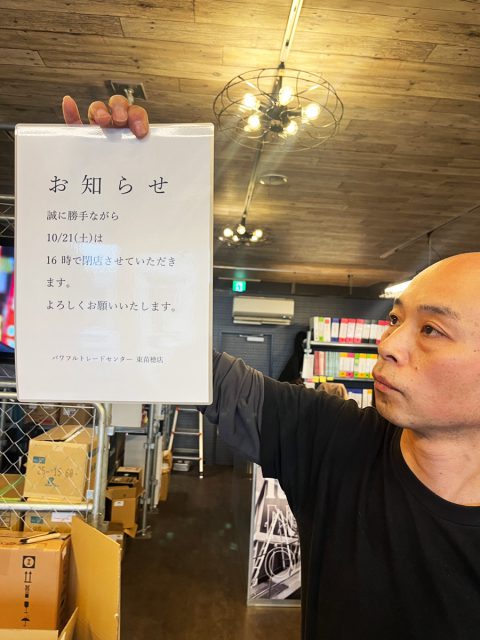 お知らせ
誠に勝手ながら
10/21(土)は
16 時で閉店させていただき
ます。
よろしくお願いいたします。
パワフルトレードセンター 東苗穂店